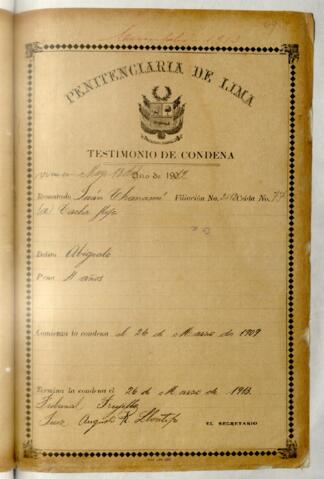 PENITENCIARIA DE LIMA
TESTIMONIO DE CONDENA
Año de 19
Rematado Juán Chanamé Filiación No. Celda No. 77
(a) Cacho
Delito Abigeato
Pena 4 años
Comienza la condena el 26 de Marzo de 1909
Termina la condena el 26 de Marzo de 1913.
Tribunal Trujillo
Juez Augusto R. Llontop
EL SECRETARIO